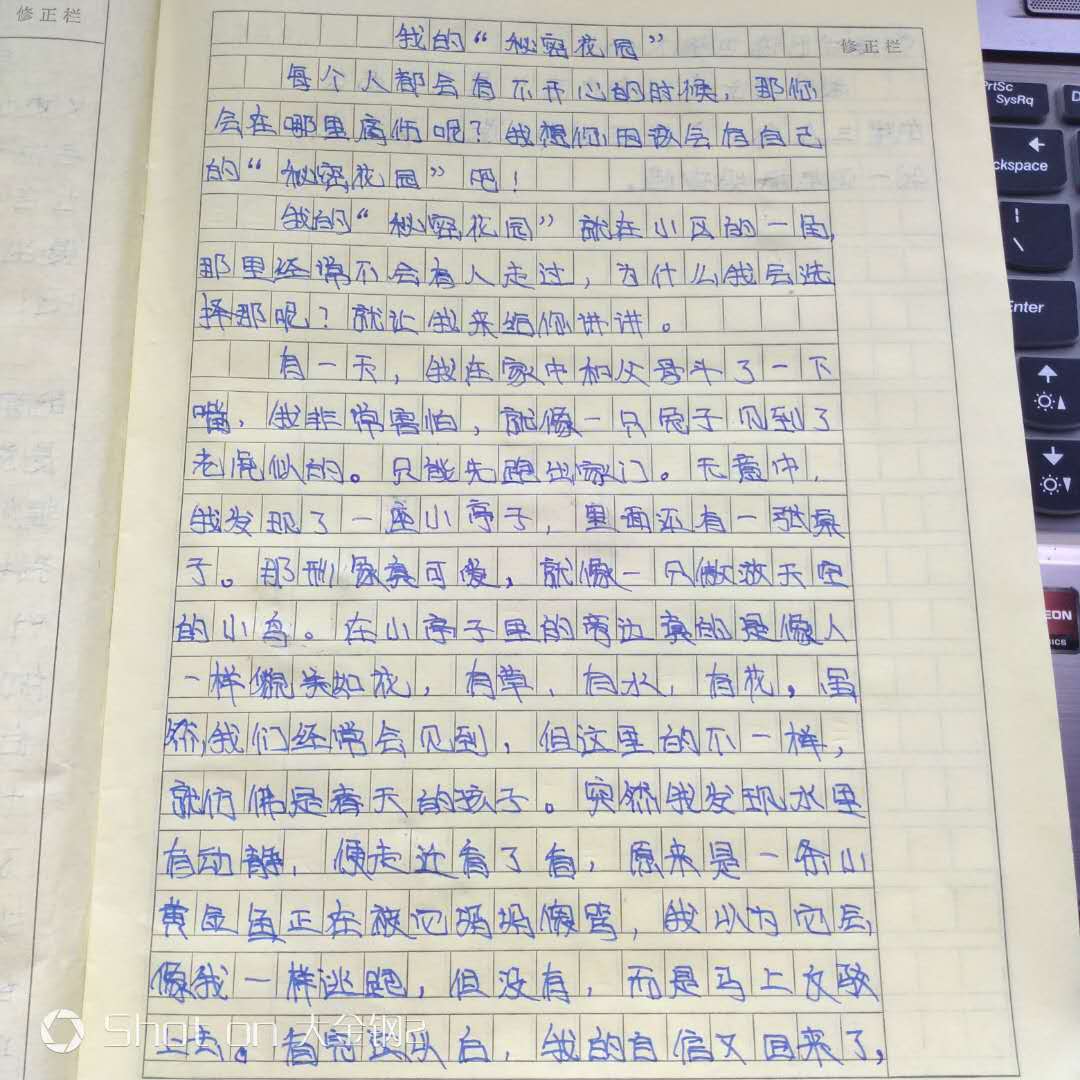 修正栏
我的“秘密花园”
修正栏
每个人都会有不开心的时候，那你
会在哪里疗伤呢？我想你因该会有自己
的“秘密花园”吧！
我的“秘密花园”就在小区的一角，
那里经常不会有人走过，为什么我会选
择那呢？就让我来给你讲讲。
有一天，我在家中和父母斗了一下
嘴，我非常害怕，就像一只兔子见到了
老虎似的。只能先跑出家门。无意中，
我发现了一座小亭子，里面还有一张桌
子。那形象真可爱，就像一只傲游天空
的小鸟。在小亭子里的旁边真的是像人
一样貌美如花，有草、有水、有花。虽
然我们经常会见到，但这里的不一样，
就仿佛是春天的孩子。突然我发现水里
有动静，便走近看了看，原来是一条小
黄金鱼正在被它妈妈像骂，我以为它会
像我一样逃跑，但没有，而是马上
上去。看完这，我的自信又回来了，
PrtSc
SysRq
ckspace
Enter
EON
Shot on 大金钢2